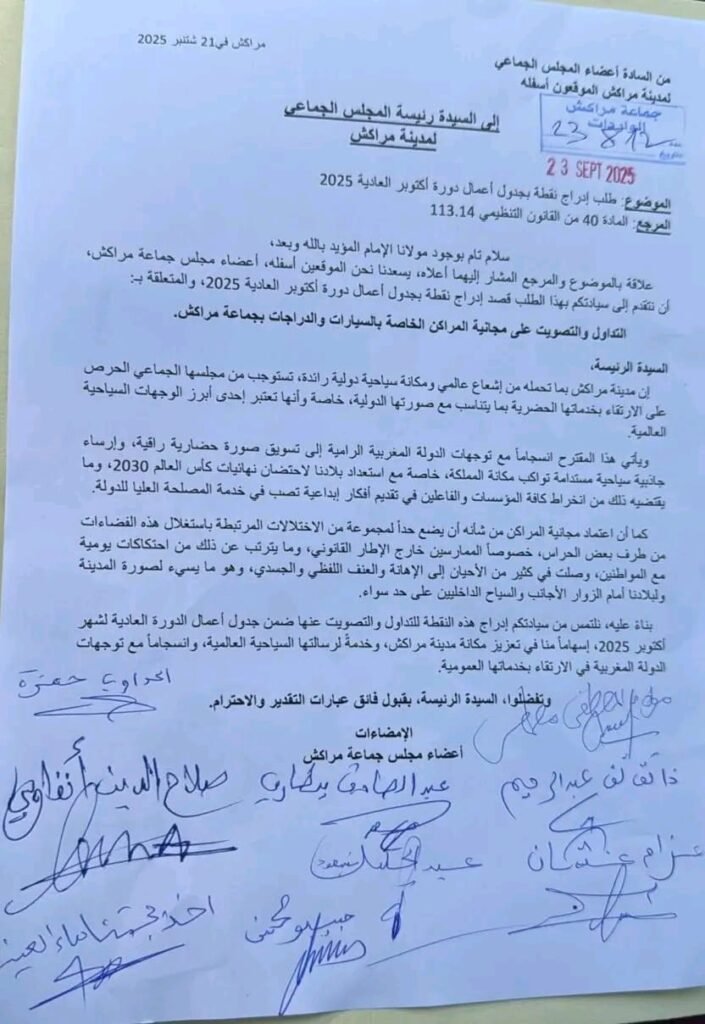 مراكش في21 شتنبر 2025
من السادة أعضاء المجلس الجماعي
لمدينة مراكش الموقعون أسفله
جماعة مراكش
الواردات
23812
23 SEPT 2025
إلى السيدة رئيسة المجلس الجماعي
لمدينة مراكش
الموضوع: طلب إدراج نقطة بجدول أعمال دورة أكتوبر العادية 2025
المرجع: المادة 40 من القانون التنظيمي 113.14
سلام تام بوجود مولانا الإمام المؤيد بالله وبعد،
علاقة بالموضوع والمرجع المشار إليهما أعلاه، يسعدنا نحن الموقعين أسفله، أعضاء مجلس جماعة مراكش،
أن نتقدم إلى سيادتكم بهذا الطلب قصد إدراج نقطة بجدول أعمال دورة أكتوبر العادية 2025، والمتعلقة بـ:
التداول والتصويت على مجانية المراكن الخاصة بالسيارات والدراجات بجماعة مراكش.
السيدة الرئيسة،
إن مدينة مراكش بما تحمله من إشعاع عالمي ومكانة سياحية دولية رائدة، تستوجب من مجلسها الجماعي الحرص
على الارتقاء بخدماتها الحضرية بما يتناسب مع صورتها الدولية، خاصة وأنها تعتبر إحدى أبرز الوجهات السياحية
العالمية.
ويأتي هذا المقترح انسجاماً مع توجهات الدولة المغربية الرامية إلى تسويق صورة حضارية راقية، وإرساء
جاذبية سياحية مستدامة تواكب مكانة المملكة، خاصة مع استعداد بلادنا لاحتضان نهائيات كأس العالم 2030، وما
يقتضيه ذلك من انخراط كافة المؤسسات والفاعلين في تقديم أفكار إبداعية تصب في خدمة المصلحة العليا للدولة.
كما أن اعتماد مجانية المراكن من شأنه أن يضع حداً لمجموعة من الاختلالات المرتبطة باستغلال هذه الفضاءات
من طرف بعض الحراس، خصوصاً الممارسين خارج الإطار القانوني، وما يترتب عن ذلك من احتكاكات يومية
مع المواطنين، وصلت في كثير من الأحيان إلى الإهانة والعنف اللفظي والجسدي، وهو ما يسيء لصورة المدينة
ولبلادنا أمام الزوار الأجانب والسياح الداخليين على حد سواء.
بناءً عليه، نلتمس من سيادتكم إدراج هذه النقطة للتداول والتصويت عنها ضمن جدول أعمال الدورة العادية لشهر
أكتوبر 2025، إسهاماً منا في تعزيز مكانة مدينة مراكش، وخدمةً لرسالتها السياحية العالمية، وانسجاماً مع توجهات
الدولة المغربية في الارتقاء بخدماتها العمومية.
وتفضلوا، السيدة الرئيسة، بقبول فائق عبارات التقدير والاحترام.
الإمضاءات
أعضاء مجلس جماعة مراكش
حمزة
عبد الرحيم
عبد الصادق بيطاري
صلاح الدين أنفاوي
عزام عثمان